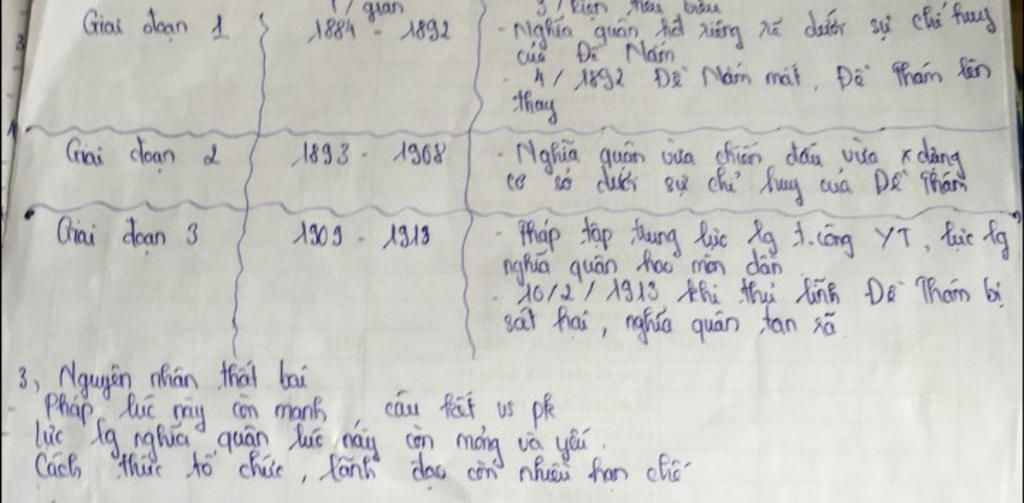 T/gian
Giai đoạn 1 1884 - 1892 - Nghĩa quân hđ riêng rẽ dưới sự chỉ huy
của Đề Nắm
- 4/1892 Đề Nắm mất, Đề Thám lên
thay
Giai đoạn 2 1893 - 1908 - Nghĩa quân vừa chiến đấu vừa x dựng
cơ sở dưới sự chỉ huy của Đề Thám
Giai đoạn 3 1909 - 1913 - Pháp tập trung lực lg t.công YT, lực lg
nghĩa quân hao mòn dần
- 10/2/1913 khi thủ lĩnh Đề Thám bị
sát hại, nghĩa quân tan rã
3, Nguyên nhân thất bại
Pháp lúc này còn mạnh câu kết vs pk
lực lg nghĩa quân lúc này còn mỏng và yếu.
Cách thức tổ chức, lãnh đạo còn nhiều hạn chế